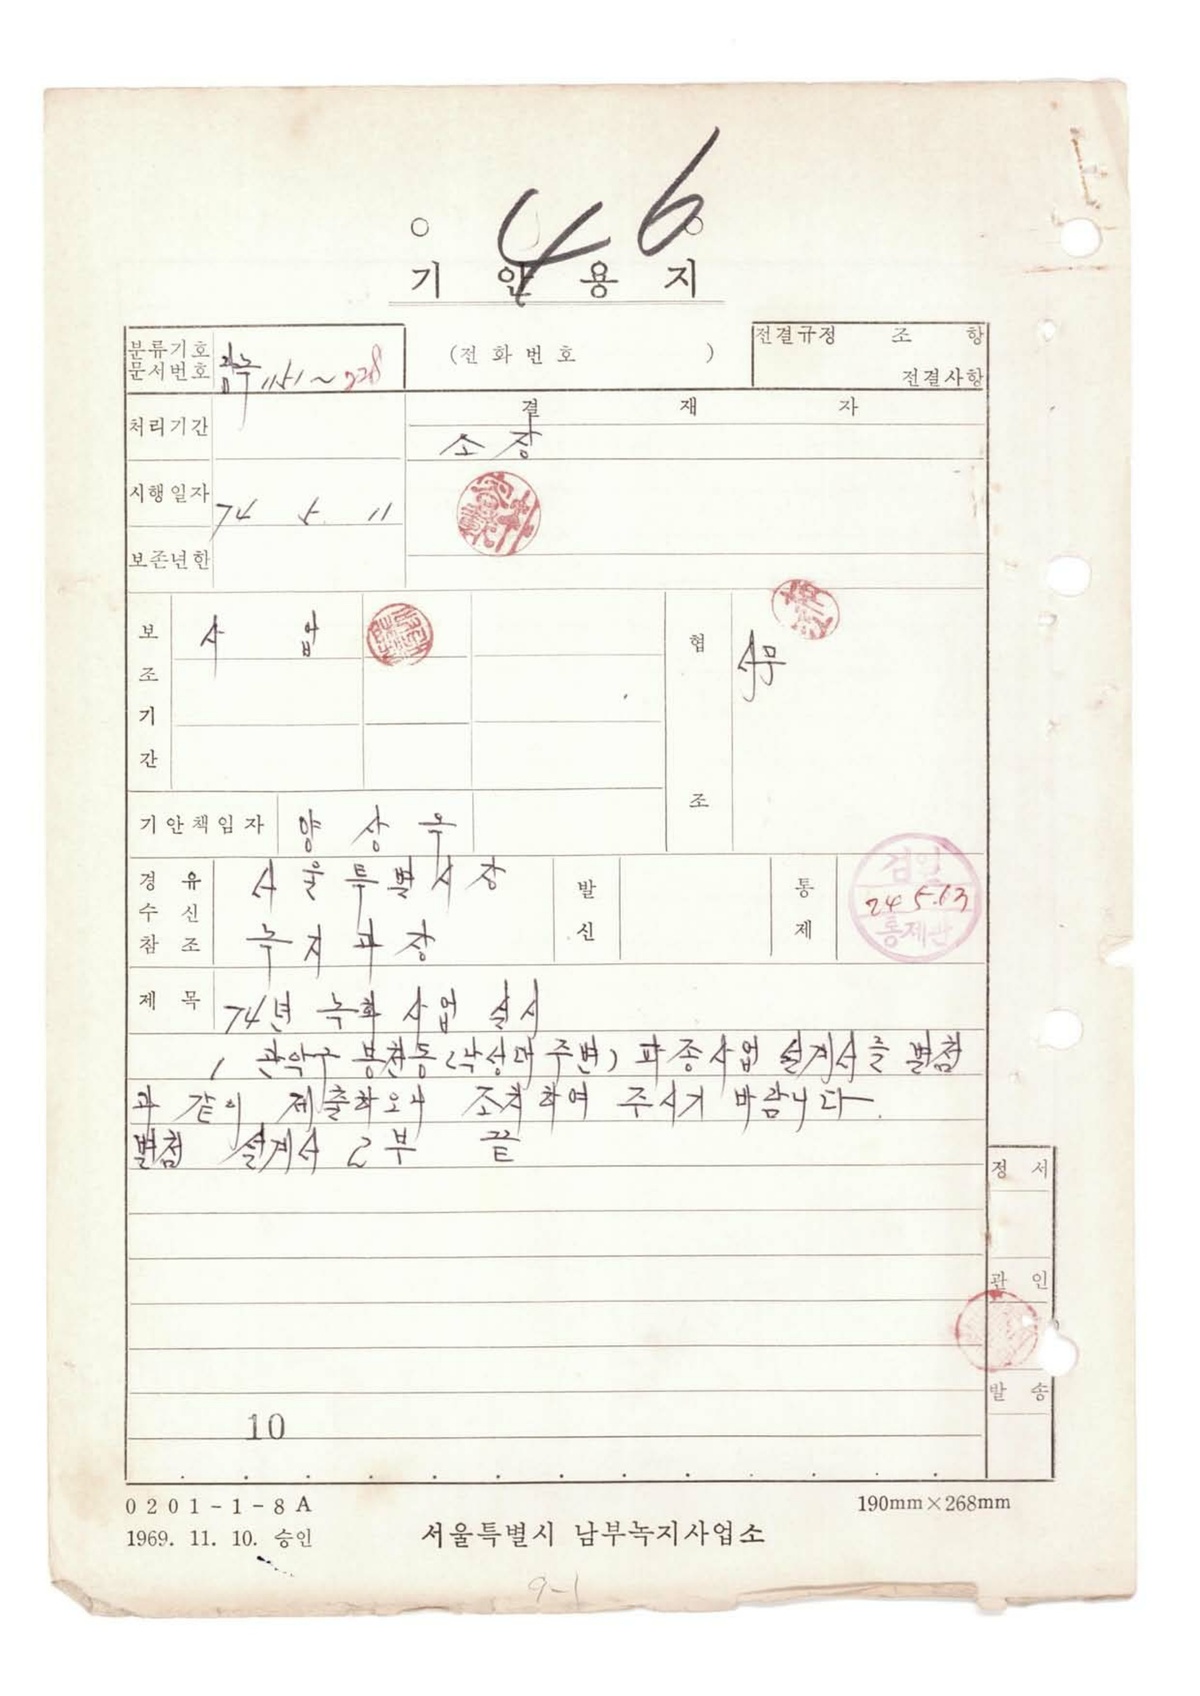 46
기 안 용 지
분류기호
문서번호
남녹 1151~228
(전화번호 )
전결규정 조 항
전결사항
처리기간
결 재 자
소장
시행일자
74 5. 11
보존년한
보조기간
사업
협조
서무
기안책임자
양상욱
경유
수신
참조
서울특별시장
녹지과장
발신
통제
검열
74 5.13
통제관
제목
74년 녹화사업 실시
1 관악구 봉천동(낙성대 주변) 파종사업 설계서를 별첨
과 같이 제출하오니 조치하여 주시기 바랍니다.
별첨 설계서 2부 끝
정서
관인
발송
10
0201-1-8A
190mm×268mm
1969. 11. 10. 승인
서울특별시 남부녹지사업소
9-1